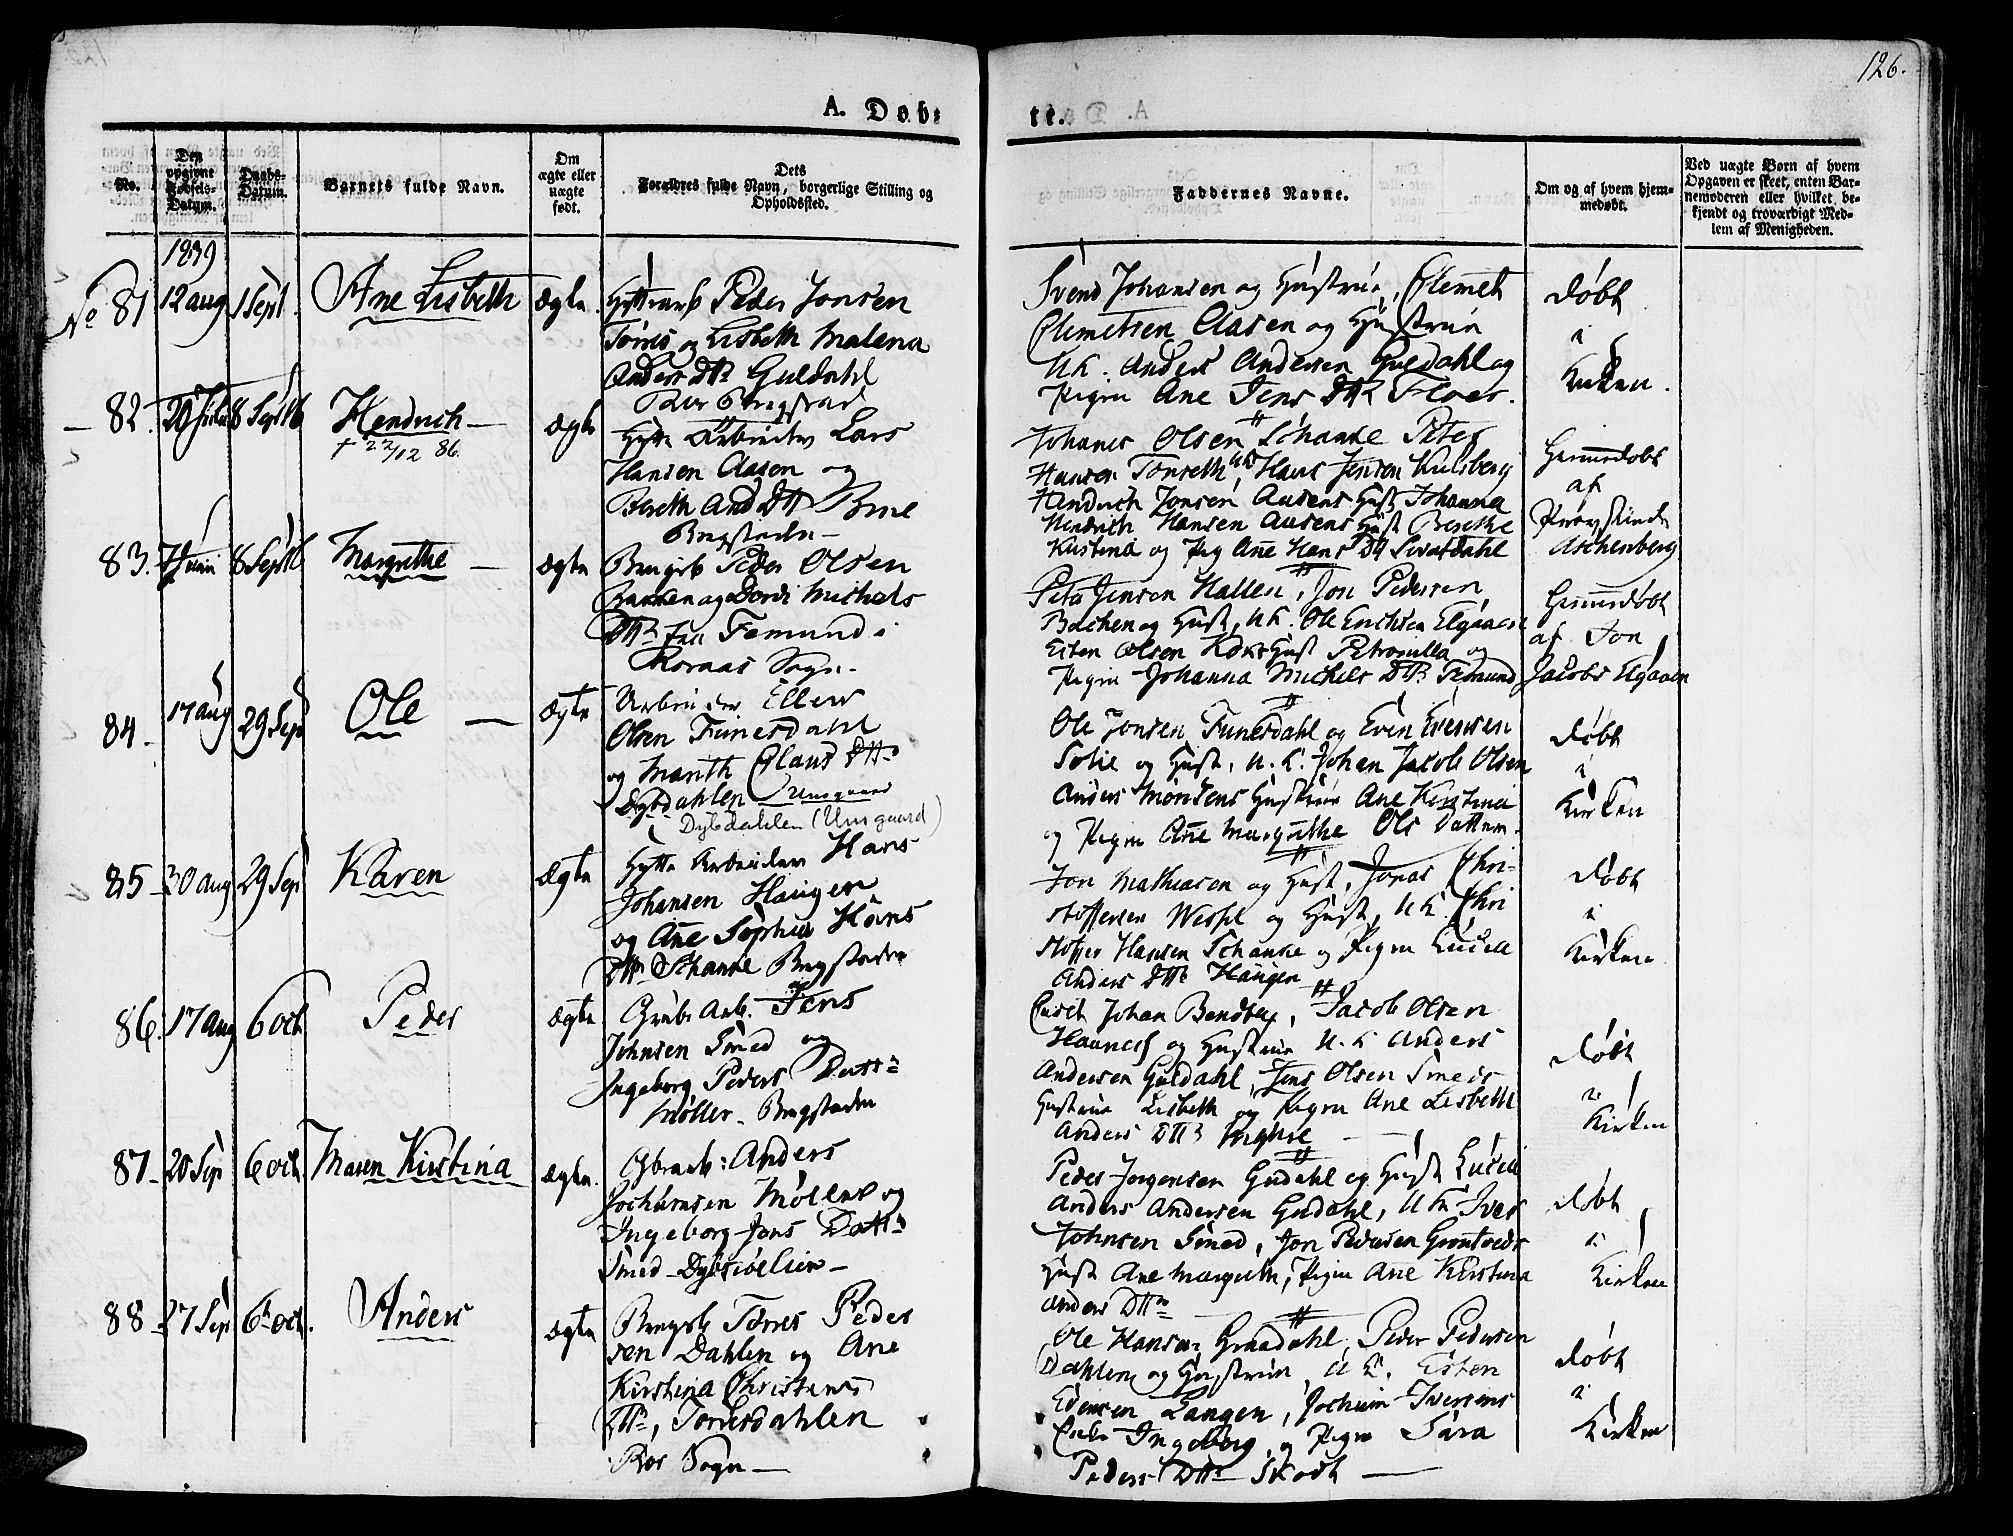 126.
A. Døb=
te.
No.
Den opgivne Fødsels-Datum.
Daabs-Datum.
Barnets fulde Navn.
Om ægte eller uægte født.
Dets Forældres fulde Navn, borgerlige Stilling og Opholdssted.
Faddernes Navne.
Om og af hvem hjemmedøbt.
Ved uægte Børn af hvem Opgaven er skeet, enten Barnemoderen eller hvilket bekjendt og troværdigt Medlem af Menigheden.
1839
No 81 12 aug 1 Sept. Ane Lisbeth ægte.
Peder Jonsen
Tørres og Lisbeth Malena
Anders Dttr Guldahl
Røer Bergstad
Svend Johansen og Hustrue, Clemet
Clemetsen Aasen og Hustrue
U.K. Anders Andersen Guldahl og
Pigen Ane Jens Dttr Floer.
døbt
i
Kirken.
82. 8 Septb Hendrich ægte
† 22/12 86.
Hytte Arbeider Lars
Hansen Aasen og
Bereth And Dttr Brue
Bergstaden
Johanes Olsen Schanke Peter
Hansen Tønseth, UK Hans Jensen Kulsberg
Hendrich Jonsen Aasens Hust Johanna
Hendrich Hansen Aasens Hust Berethe
Kirstina og Pig Ane Hans Dtt
Hiemmedøbt
af
Aschenberg
83. 8 Septb Margrethe ægte
Bergarb Peder Olsen
Bakken og Dordi Michels
Dttr fra Femund i
Roraas Sogn.
Peter Jensen Hallen, Jon Pedersen
Bachen og Hust, U.K. Ole Erichsen Elgaaen
Esten Olsen Hust Petronilla og
Pigen Johanna Michels Dttr Femund
Hiemmedøbt
af Jon
Jacobs Elgaaen
84. 17 aug 29 Sep Ole ægte
Arbeider Ellev
Olsen Funesdahl
og Marith Olaus Dttr
Dybdahlen Unsgaard
Dybdahlen (Unsgaard)
Ole Jonsen Funesdahl og Even Evensen
Solie og Hust, U.K. Johan Jakob Olsen
Anders Mortens Hustrue Ane Kirstina
og Pigen Ane Margrethe Ols Datter.
døbt
i
Kirken
85 30 aug 29 Sep Karen ægte
Hytte Arbeider Hans
Johansen Haugen
og Ane Sophia Hans
Dttr Schanke Bergstaden
Jon Mathiasen og Hust, Jonas Chri-
stoffersen Wessel og Hust, U.K. Chri
stoffer Hansen Schanke og Pigen Lucia
Anders Dttr Haugen
døbt
i
Kirken
86. 17 aug 6 oct Peder ægte
Grube Arb. Jens
Johnsen Smed og
Ingeborg Peders Dattr
Møller. Bergstaden
Johan Bendtzen, Jacob Olsen
og Hustrue U.K. Anders
Andersen Guldahl, Jens Olsen Smeds
Hustrue Lisbeth og Pigen Ane Lisbeth
Anders Dttr
døbt
i
Kirken
87. 20 Sep 6 oct. Maren Kirstina ægte.
Anders
Jochumsen Møller og
Ingeborg Jons Dattr
Smed
Peder Jorgensen Guldahl og Hust Lucia
Anders Andersen Guldahl, U.K. Iver
Johnsen Smed, Jon Pedersen
Hust Ane Margreth, Pigen Ane Kirstina
Anders Dttr
døbt
i
Kirken
88 27 Sep 6 oct. Anders ægte
Bergarb Tørres Peder
sen Dahlen og Ane
Kirstina Christens
Dttr, Tørresdahlen
Røer Sogn
Ole Hansen Graadahl, Peder Pedersen
Dahlen og Hustrue, U.K. Esten
Edensen Langen, Jochum Iversens
Enke Ingeborg, og Pigen Sara
Peders Dttr Skott
døbt
i
Kirken